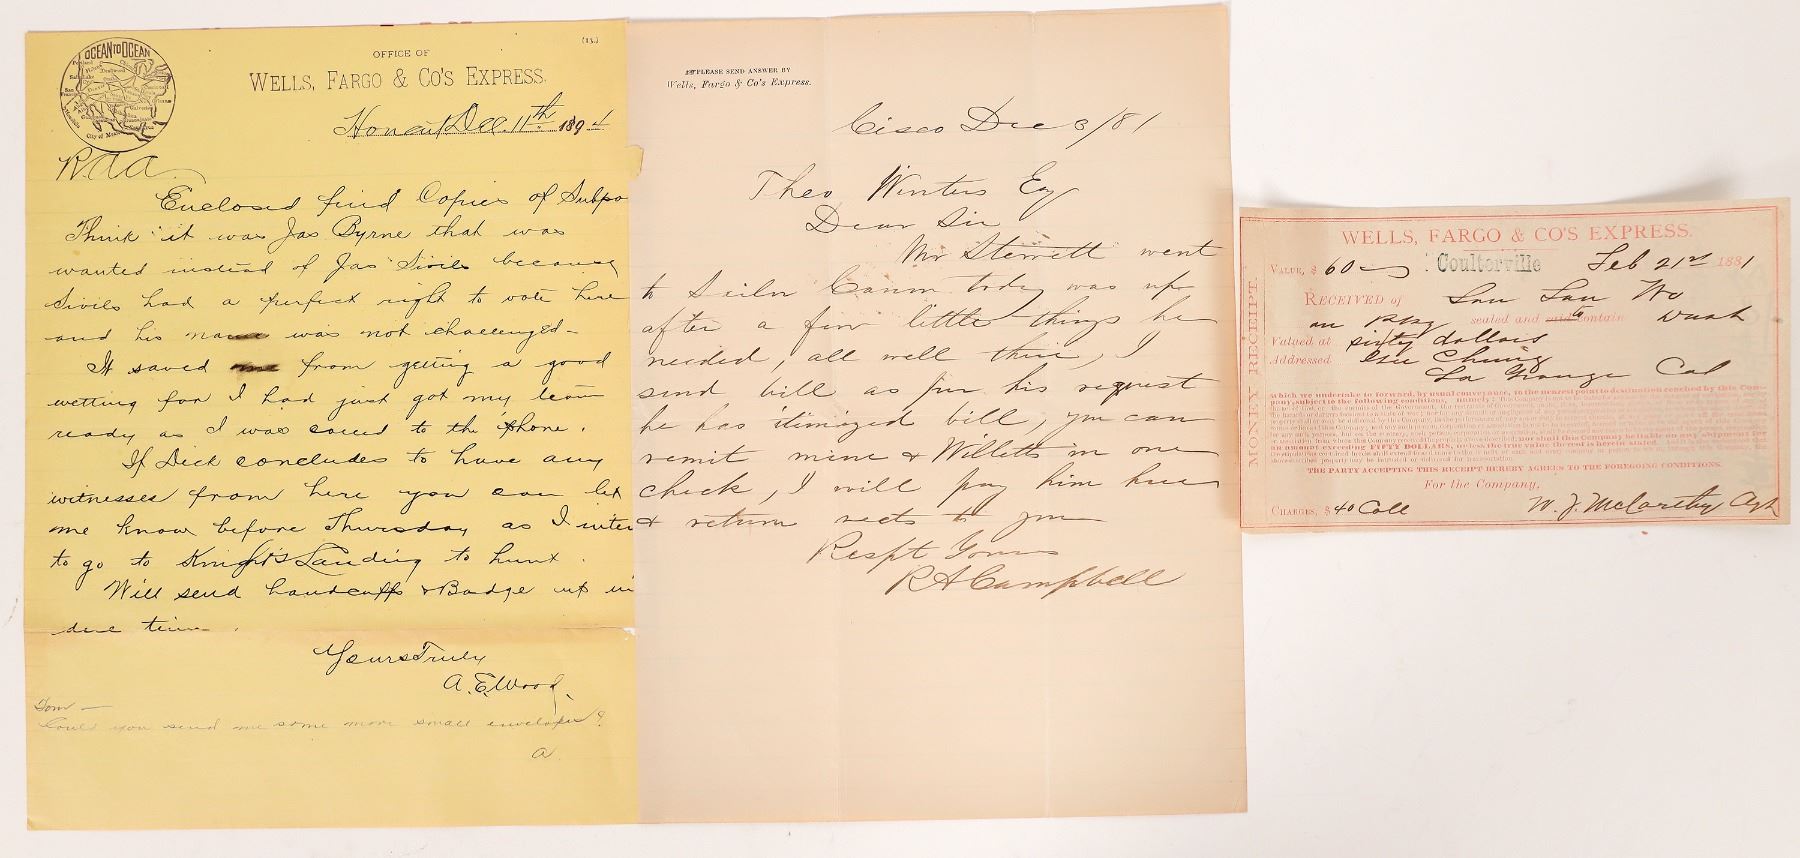 OCEAN TO OCEAN
(13.)
OFFICE OF
WELLS, FARGO & CO'S EXPRESS.
Dec. 11th 1894
R.A.A.
Enclosed find Copies of Subpo
Think it was Jas Byrne that was
wanted instead of Jas Sivils because
Sivils had a perfect right to vote here
and his name was not challenged-
It saved me from getting a good
wetting for I had just got my team
ready as I was called to the 'phone.
If Dick concludes to have any
witnesses from here you can let
me know before Thursday as I inten
to go to Knight's Landing to hunt.
Will send handcuffs & Badge up in
due time.
Yours Truly
A. E. Wood,
Dom -
Could you send me some more small envelopes?
A
PLEASE SEND ANSWER BY
Wells, Fargo & Co's Express.
Cisco Dec 3/81
Theo Winters Esq
Dear Sir
Mr Sterrett went
to Canon today was up
after a few little things he
needed, all well there, I
send bill as per his request
he has itimized bill, you can
remit mine & Willetts in one
check, I will pay him here
& return rects to you
Respt Yours
R A Campbell
MONEY RECEIPT.
WELLS, FARGO & CO'S EXPRESS.
VALUE, $ 60 Coulterville Feb 21st 1881
RECEIVED of
Pkg sealed and said to contain
Valued at sixty dollars
Addressed Chung
La Grange Cal
which we undertake to forward, by usual conveyance, to the nearest point to destination reached by this Com-
pany, subject to the following conditions, namely:
nor shall this Company be liable on any shipment
an amount exceeding FIFTY DOLLARS, unless the true value be herein stated.
THE PARTY ACCEPTING THIS RECEIPT HEREBY AGREES TO THE FOREGOING CONDITIONS.
For the Company,
CHARGES, $ 40 Coll W. J. McCarthy Agt